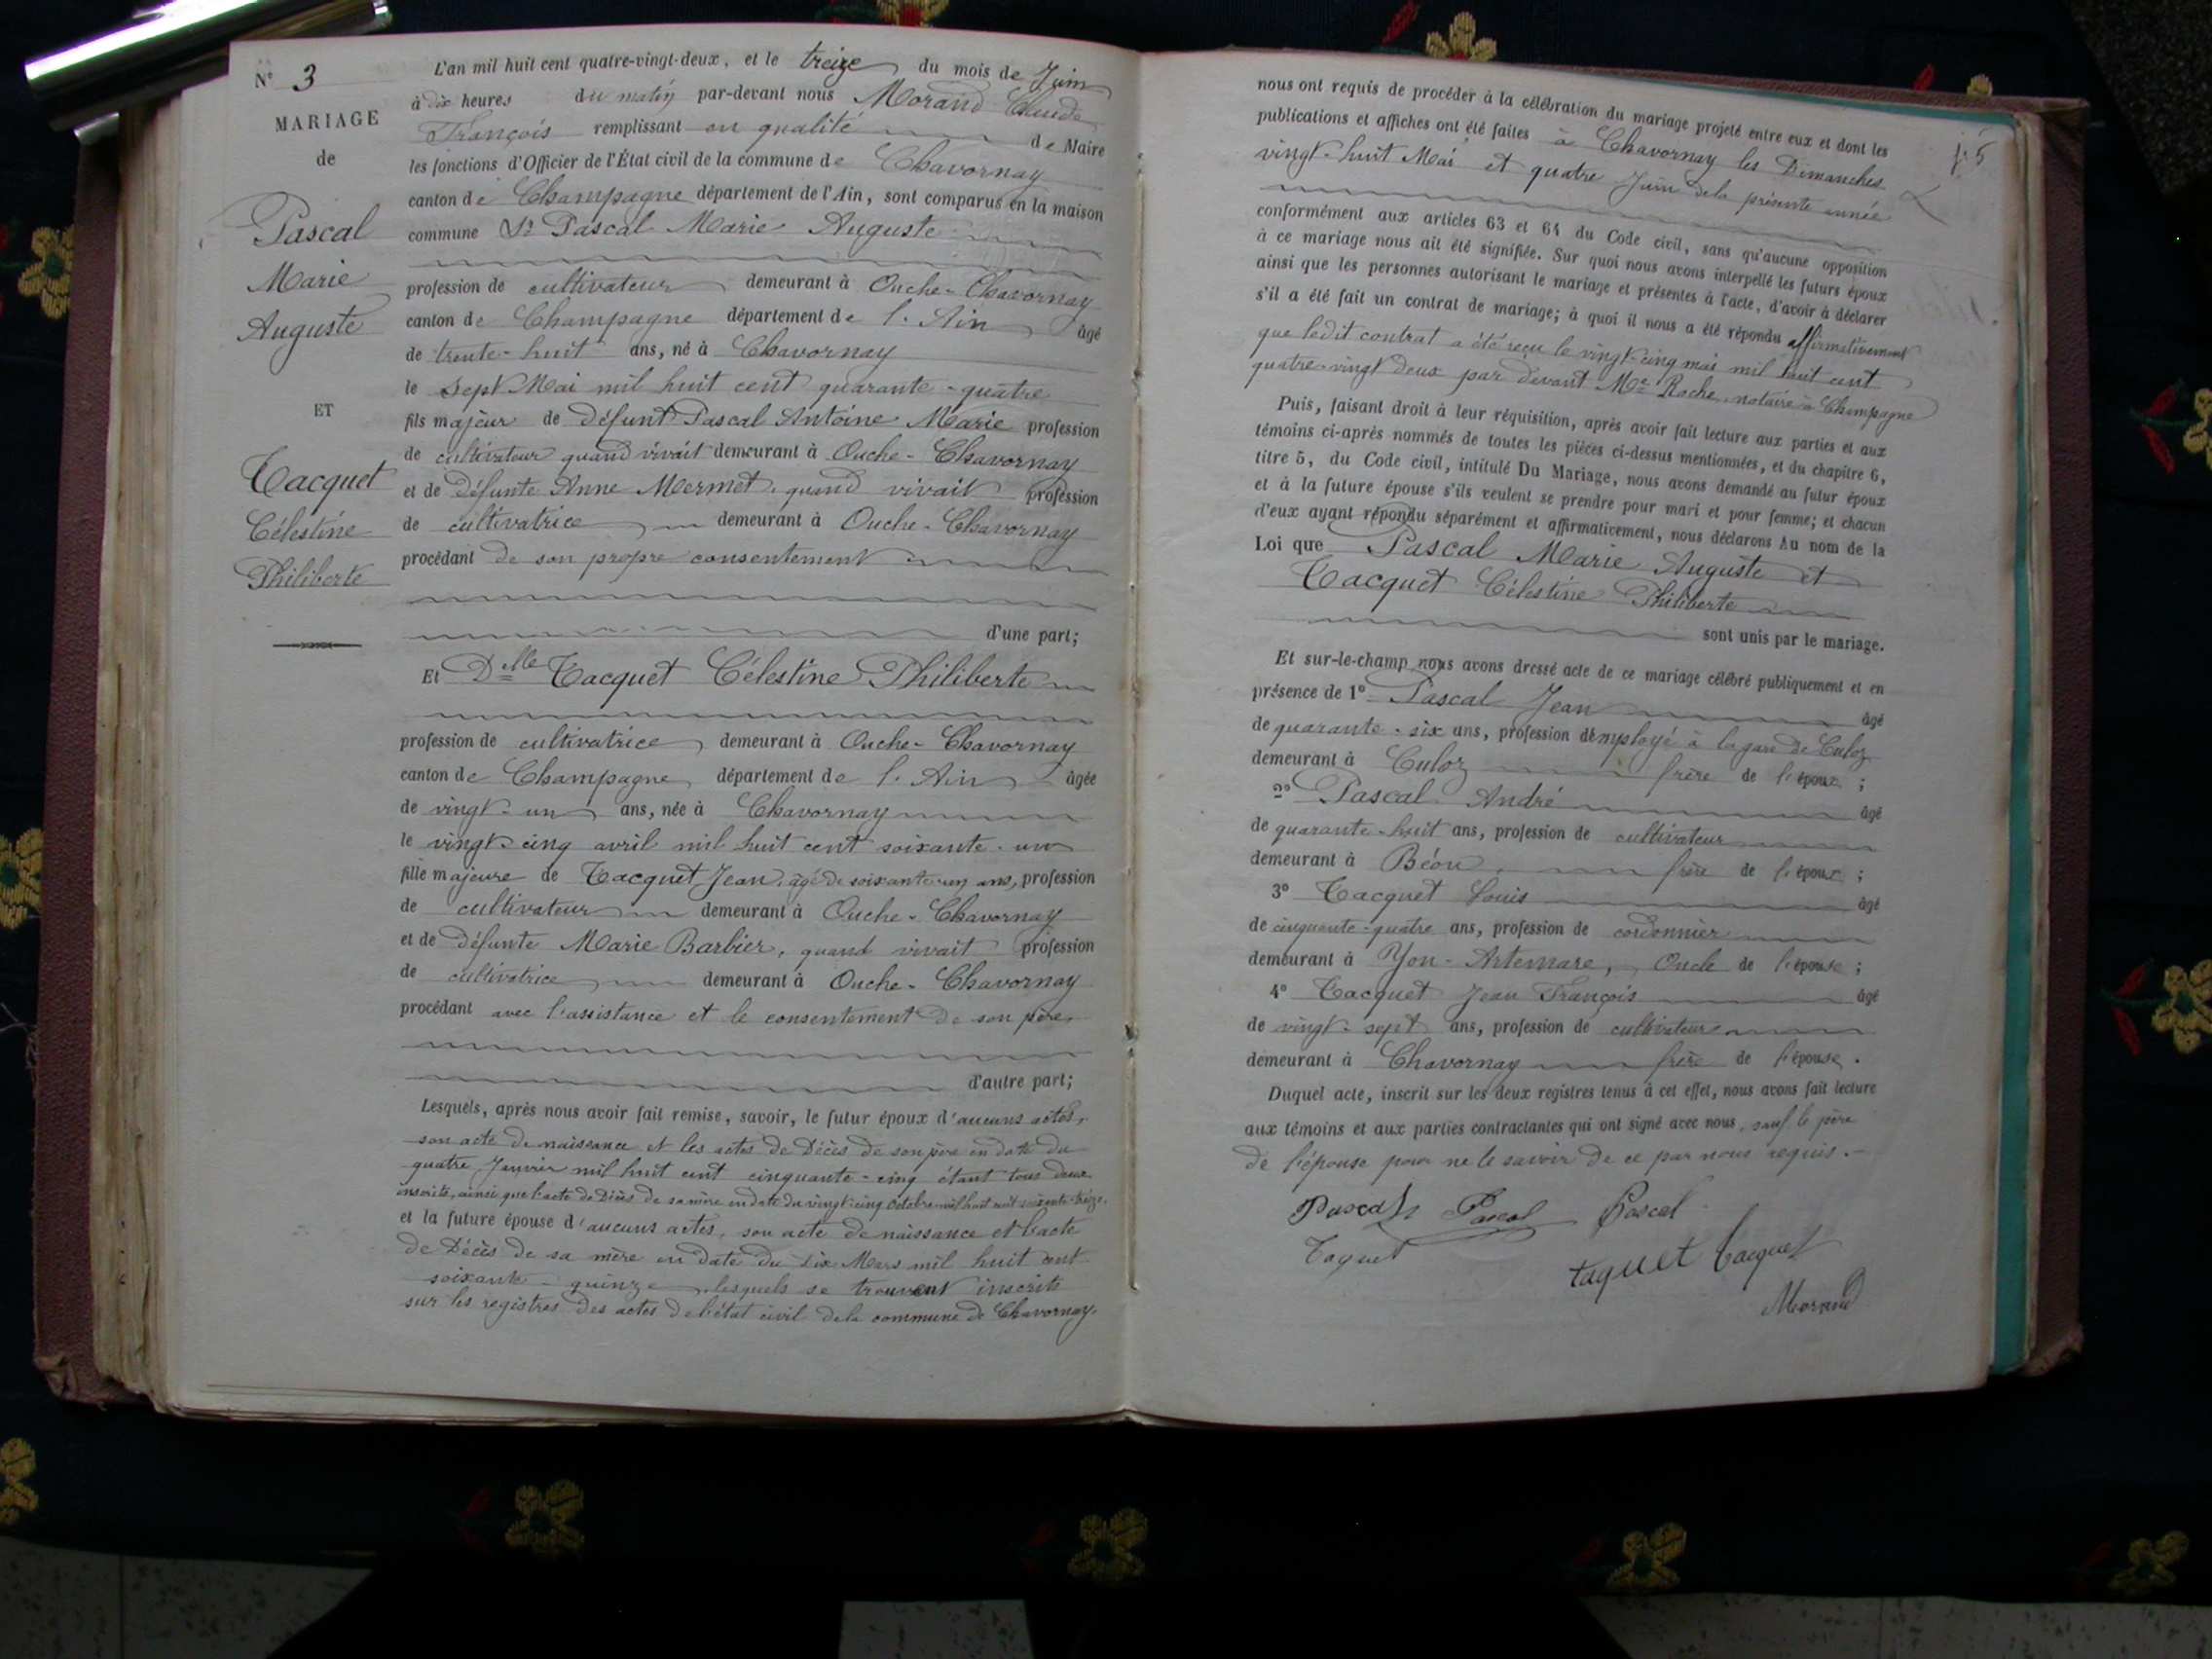 N° 3
MARIAGE
de
Pascal
Marie
Auguste
ET
Tacquet
Célestine
Philiberte
L'an mil huit cent quatre-vingt-deux, et le treize du mois de Juin
à dix heures du matin par-devant nous Morand Claude
François remplissant en qualité de Maire
les fonctions d'Officier de l'État civil de la commune de Chavornay
canton de Champagne département de l'Ain, sont comparus en la maison
commune Sr Pascal Marie Auguste
profession de cultivateur demeurant à Ouche-Chavornay
canton de Champagne département de l'Ain âgé
de trente-huit ans, né à Chavornay
le sept Mai mil huit cent quarante-quatre
fils majeur de défunt Pascal Antoine Marie profession
de cultivateur quand vivait demeurant à Ouche-Chavornay
et de défunte Anne Mermet, quand vivait profession
de cultivatrice demeurant à Ouche-Chavornay
procédant de son propre consentement
d'une part;
Et Dlle Tacquet Célestine Philiberte
profession de cultivatrice demeurant à Ouche-Chavornay
canton de Champagne département de l'Ain âgée
de vingt-un ans, née à Chavornay
le vingt-cinq avril mil huit cent soixante-un
fille majeure de Tacquet Jean, âgé de soixante-un ans, profession
de cultivateur demeurant à Ouche-Chavornay
et de défunte Marie Barbier, quand vivait profession
de cultivatrice demeurant à Ouche-Chavornay
procédant avec l'assistance et le consentement de son père,
d'autre part;
Lesquels, après nous avoir fait remise, savoir, le futur époux d'aucuns actes,
son acte de naissance et les actes de Décès de son père en date du
quatre Janvier mil huit cent cinquante-cinq étant tous deux
inscrits, ainsi que l'acte de Décès de sa mère en date du vingt-cinq Octobre mil huit cent soixante-treize.
et la future épouse d'aucuns actes, son acte de naissance et l'acte
de Décès de sa mère en date du six Mars mil huit cent
soixante-quinze, lesquels se trouvent inscrits
sur les registres des actes de l'état civil de la commune de Chavornay.
nous ont requis de procéder à la célébration du mariage projeté entre eux et dont les
publications et affiches ont été faites à Chavornay les Dimanches
vingt-huit Mai et quatre Juin de la présente année
conformément aux articles 63 et 64 du Code civil, sans qu'aucune opposition
à ce mariage nous ait été signifiée. Sur quoi nous avons interpellé les futurs époux
ainsi que les personnes autorisant le mariage et présentes à l'acte, d'avoir à déclarer
s'il a été fait un contrat de mariage; à quoi il nous a été répondu affirmativement
que ledit contrat a été reçu le vingt-cinq mai mil huit cent
quatre-vingt deux par devant Me Roche, notaire à Champagne
Puis, faisant droit à leur réquisition, après avoir fait lecture aux parties et aux
témoins ci-après nommés de toutes les pièces ci-dessus mentionnées, et du chapitre 6,
titre 5, du Code civil, intitulé Du Mariage, nous avons demandé au futur époux
et à la future épouse s'ils veulent se prendre pour mari et pour femme; et chacun
d'eux ayant répondu séparément et affirmativement, nous déclarons Au nom de la
Loi que Pascal Marie Auguste et
Tacquet Célestine Philiberte
sont unis par le mariage.
Et sur-le-champ nous avons dressé acte de ce mariage célébré publiquement et en
présence de 1° Pascal Jean âgé
de quarante-six ans, profession d'employé à la gare de Culoz
demeurant à Culoz frère de l'époux ;
2° Pascal André âgé
de quarante-huit ans, profession de cultivateur
demeurant à Béon, frère de l'époux ;
3° Tacquet Louis âgé
de cinquante-quatre ans, profession de cordonnier
demeurant à Yon-Artemare, Oncle de l'épouse ;
4° Tacquet Jean François âgé
de vingt-sept ans, profession de cultivateur
demeurant à Chavornay frère de l'épouse.
Duquel acte, inscrit sur les deux registres tenus à cet effet, nous avons fait lecture
aux témoins et aux parties contractantes qui ont signé avec nous, sauf le père
de l'épouse pour ne le savoir de ce par nous requis.
Pascal Pascal Pascal
Taquet taquet Tacquet
Morand